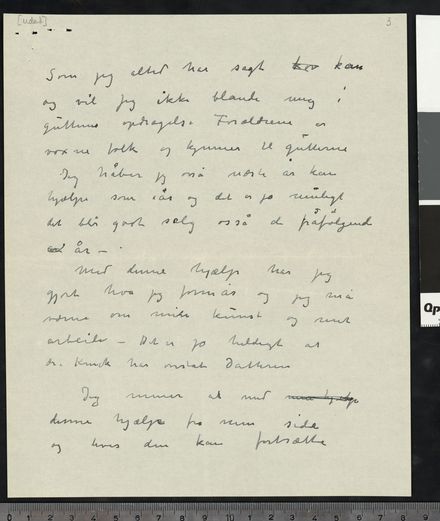 [Udat]
3
Som jeg altid har sagt kan
og vil jeg ikke blande mig i
guttens opdragelse Forældrene er
voxne folk og kjenner til gutterne
Jeg håber jeg også næste år kan
hjælpe som iår og det er jo muligt
det blir godt salg også de påfølgende
år —
Med denne hjælp har jeg
gjort hva jeg formår og jeg må
værne om min kunst og mit
arbeide — Det er jo heldigt at
dr. har Datteren
Jeg mener at med
denne hjælp fra min side
og hvis den kan fortsætte
Qp
0 1 2 3 4 5 6 7 8 9 10 1 2 3 4 5 6 7 8